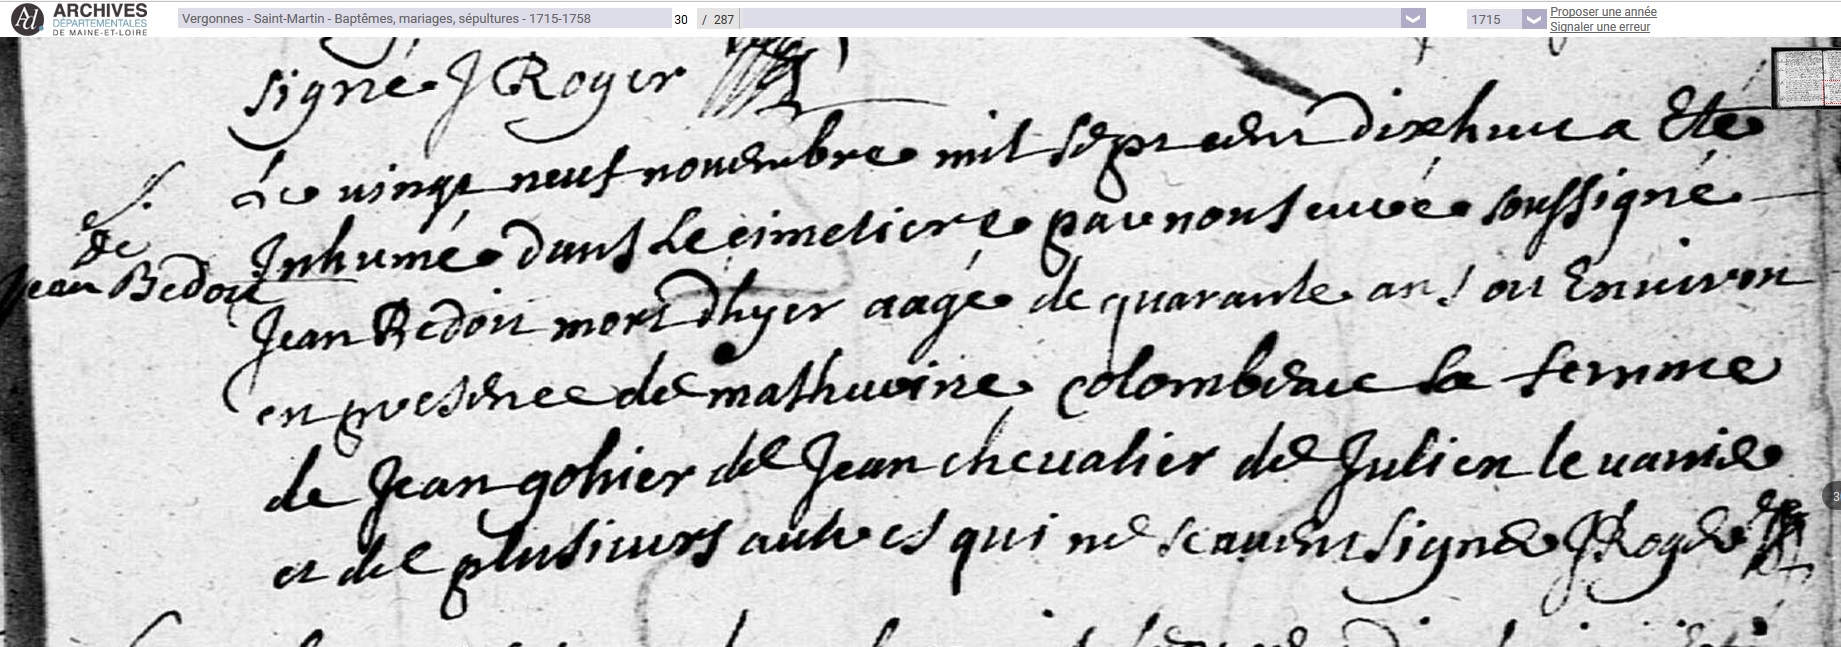 ARCHIVES
DÉPARTEMENTALES
DE MAINE-ET-LOIRE
Vergonnes - Saint-Martin - Baptêmes, mariages, sépultures - 1715-1758
30 / 287
1715
Proposer une année
Signaler une erreur
signé J Roger
Le vingt neuf novembre mil sept cent dixhuit a Eté
S.
de
Jean Bedoit
Inhumé dans Le cimetiere par nous curé soussigné
Jean Bedoit mort dhyer aagé de quarante ans ou Environ
en presence de mathurine colombeau sa femme
de Jean gohier de Jean chevalier de Julien
et de plusieurs autres qui ne scavent signer JRoger
3